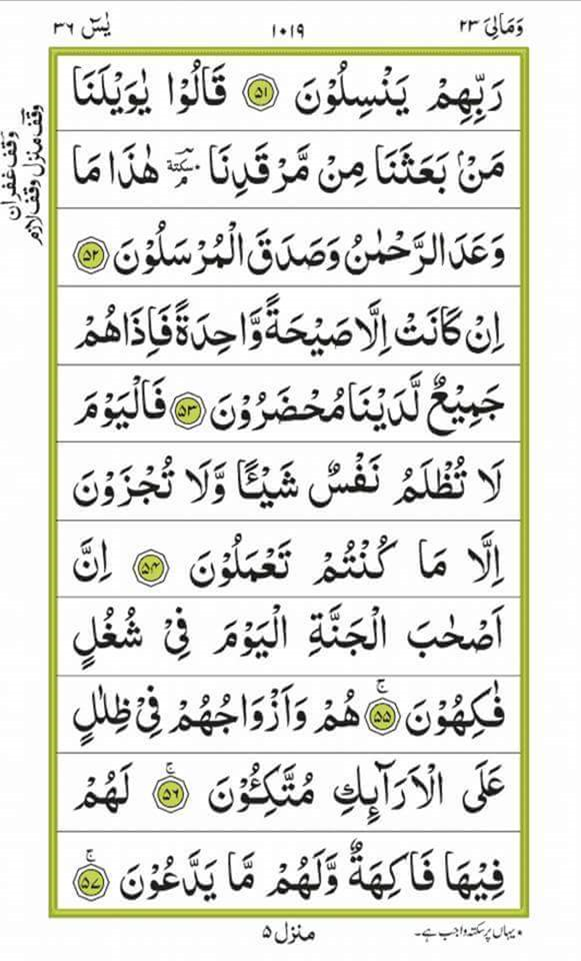 وَمَالِیَ ۲۳ ۱۰۱۹ یٰسٓ ۳۶
رَبِّهِمْ یَنْسِلُوْنَ ۵۱ قَالُوْا یٰوَیْلَنَا
مَنْۢ بَعَثَنَا مِنْ مَّرْقَدِنَا سكتة هٰذَا مَا
وَعَدَ الرَّحْمٰنُ وَصَدَقَ الْمُرْسَلُوْنَ ۵۲
اِنْ كَانَتْ اِلَّا صَیْحَةً وَّاحِدَةً فَاِذَا هُمْ
جَمِیْعٌ لَّدَیْنَا مُحْضَرُوْنَ ۵۳ فَالْیَوْمَ
لَا تُظْلَمُ نَفْسٌ شَیْـًٔا وَّلَا تُجْزَوْنَ
اِلَّا مَا كُنْتُمْ تَعْمَلُوْنَ ۵۴ اِنَّ
اَصْحٰبَ الْجَنَّةِ الْیَوْمَ فِیْ شُغُلٍ
فٰكِهُوْنَ ۚ ۵۵ هُمْ وَاَزْوَاجُهُمْ فِیْ ظِلٰلٍ
عَلَی الْاَرَآىِٕكِ مُتَّكِـُٔوْنَ ۚ ۵۶ لَهُمْ
فِیْهَا فَاكِهَةٌ وَّلَهُمْ مَّا یَدَّعُوْنَ ۚ ۵۷
وقف منزل وقف لازم
وقف غفران
• یہاں پر سکتہ واجب ہے۔ منزل ۵